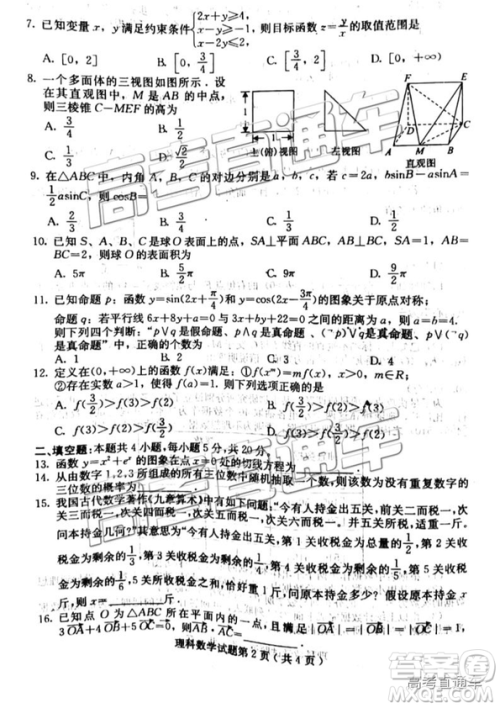 7. 已知变量 x, y 满足约束条件{2x+y≥4, x-y≥1, x-2y≤2, 则目标函数 z=y/x 的取值范围是
A. [0, 2] B. [0, 3/4] C. [3/4, 2] D. [0, +∞)
8. 一个多面体的三视图如图所示, 设
在其直观图中, M 是 AB 的中点,
则三棱锥 C-MEF 的高为
A. 3/4 B. 1/2
C. 1/3 D. √2/2
1
1
上(俯)视图 左视图 直观图
F E D C A M B
9. 在△ABC中, 内角A、B、C的对边分别是a、b、c, 若 c=2a, bsinB-asinA=
1/2 asinC, 则cosB=
A. 2/3 B. 3/4 C. 1/3 D. 1/2
10. 已知 S、A、B、C 是球 O 表面上的点, SA⊥平面 ABC, AB⊥BC, SA=AB=
BC=2, 则球O的表面积为
A. 5π B. 5/2 π C. 12π D. 9/2 π
11. 已知命题 p: 函数 y=sin(2x+π/4)和 y=cos(2x-3π/4)的图象关于原点对称;
命题 q: 若平行线 6x+8y+a=0 与 3x+by+22=0 之间的距离为 a, 则 a=b=4.
则下列四个判断: “p∨q 是假命题、p∧q 是真命题、(¬p)∨q 是假命题、p∨(¬q)
是真命题”中, 正确的个数为
A. 1 B. 2 C. 3 D. 4
12. 定义在(0, +∞)上的函数 f(x)满足: ①f(xᵐ)=mf(x), m∈R;
②存在实数 a>1, 使得 f(a)>0. 则下列选项正确的是
A. f(3/2)>f(1)>f(2) B. f(2)>f(3/2)>f(1)
C. f(3/2)>f(2)>f(1) D. f(2)>f(1)>f(3/2)
二、填空题: 本题共 4 小题, 每小题 5 分, 共 20 分.
13. 函数 y=x²+eˣ 的图象在点 处的切线方程为
14. 从由数字 1,2,3 所组成的所有三位数中随机抽取一个数, 则该数为没有重复数字的
三位数的概率为
15. 我国古代数学著作《九章算术》中有如下问题: “今有人持金出五关, 前关二而税一,
次关三而税一, 次关四而税一, 次关五而税一, 次关六而税一, 并五关所税, 适重一斤.
问本持金几何?”其意思为“今有人持金出五关, 第 1 关收税金为总量的1/2, 第 2 关收
税金为剩余的1/3, 第 3 关收税金为剩余的1/4, 第 4 关收税金为剩余的1/5, 第 5 关收
税金为剩余的1/6, 5关所收税金之和, 恰好重 1 斤, 问原本持金多少?”若原本持金 x
斤, 则 x=
16. 已知 O 为△ABC 所在平面内的一点, 且满足|OA|=|OB|=|OC|=1,
3OA+ 则
理科数学试题第 2 页(共 4 页)
高考直通车
高考直通车
答案圈
MXQE.COM
高考直通车